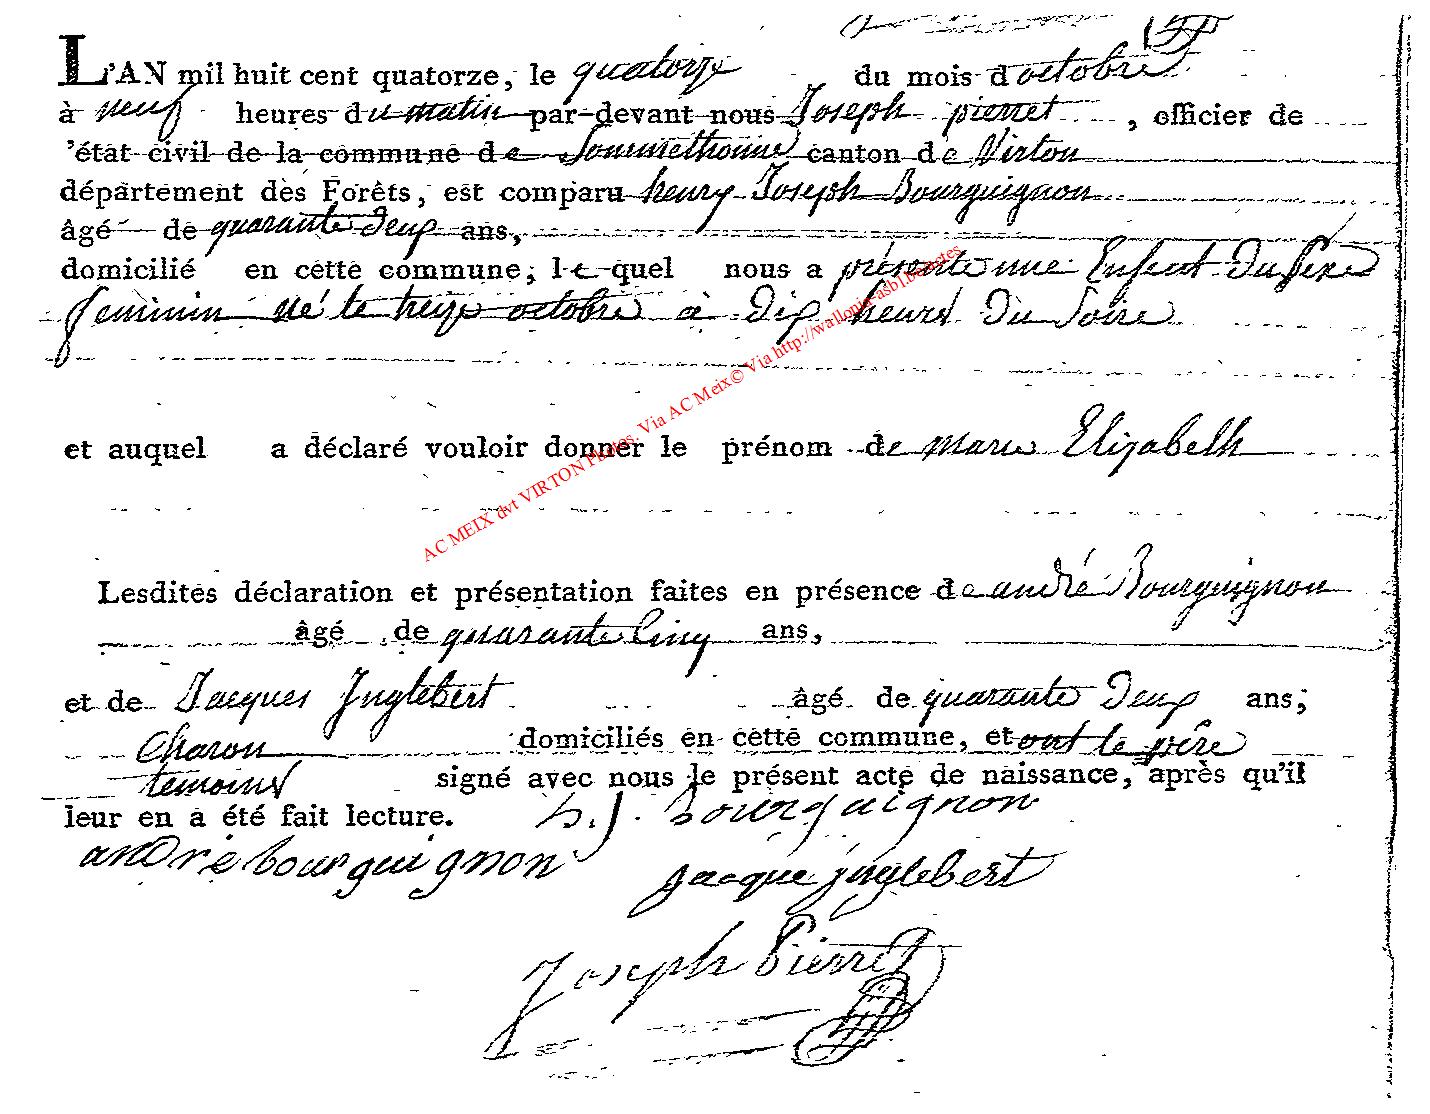 L'AN mil huit cent quatorze, le quatorze du mois d octobre
à neuf heures du matin par-devant nous Joseph pierret, officier de
'état civil de la commune de Sommethonne canton de Virton
département des Forêts, est comparu henry Joseph Bourguignon
âgé de quarante deux ans,
domicilié en cette commune, lequel nous a présenté une Enfent du Sexe
feminin né le treize octobre à dix heures du Soire
et auquel a déclaré vouloir donner le prénom de marie Elizabeth
Lesdites déclaration et présentation faites en présence de andré Bourguignon
âgé de quarante Cinq ans,
et de Jacques Inglebert âgé de quarante deux ans;
Charon domiciliés en cette commune, et ont le père
temoins signé avec nous le présent acte de naissance, après qu'il
leur en a été fait lecture. h. j. bourguignon
andré bourguignon
jacque jnglebert
Joseph Pierret
AC MEIX dvt VIRTON Photos. Via AC Meix© Via http://wallonia-asbl.be/textes